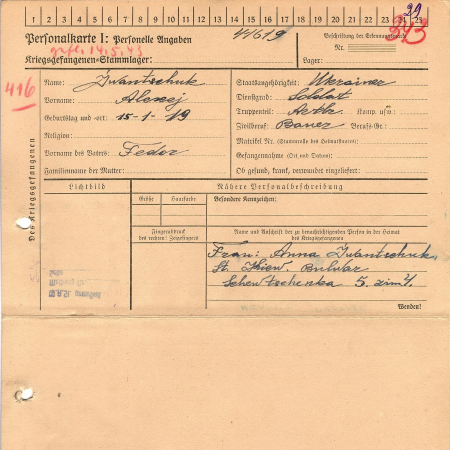 1 2 3 4 5 6 7 8 9 10 11 12 13 14 15 16 17 18 19 20 21 22 23 24 25
29
Personalkarte I: Personelle Angaben
41619
Beschriftung der Erkennungsmarke
Nr.
343
14.5.43
Kriegsgefangenen-Stammlager:
Lager:
416
Des Kriegsgefangenen
Name: Iwantschuk
Vorname: Alexej
Geburtstag und -ort: 15-1-19
Religion:
Vorname des Vaters: Fedor
Familienname der Mutter:
Staatsangehörigkeit: Ukrainer
Dienstgrad: Soldat
Truppenteil: Artl. Komp. usw.
Zivilberuf: Bauer Berufs-Gr.
Matrikel Nr. (Stammrolle des Heimatstaates):
Gefangennahme (Ort und Datum):
Ob gesund, krank, verwundet eingeliefert:
Lichtbild
Nähere Personalbeschreibung
Größe
Haarfarbe
Besondere Kennzeichen:
Fingerabdruck
des rechten! Zeigefingers
Name und Anschrift der zu benachrichtigenden Person in der Heimat
des Kriegsgefangenen
Frau: Anna Iwantschuk
St. Kiew. Bulwar
Schewtschenka 5. zim 4.
Wenden!